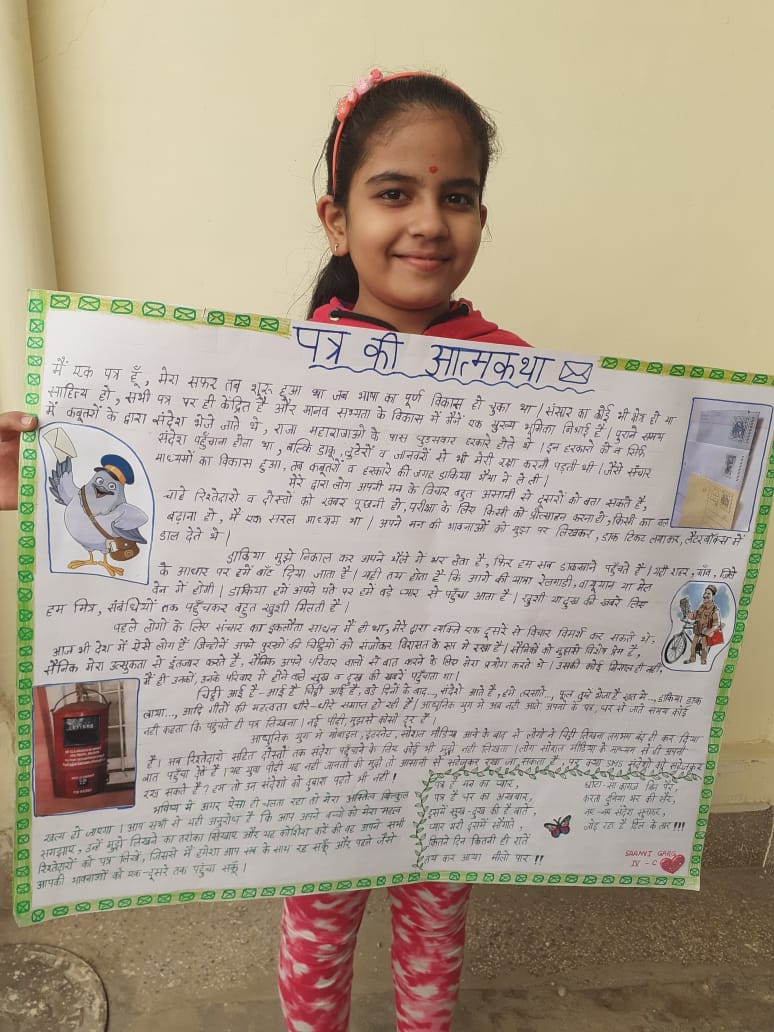 पत्र की आत्मकथा
मैं एक पत्र हूँ, मेरा सफर तब शुरू हुआ था जब भाषा का पूर्ण विकास हो चुका था। संसार का कोई भी क्षेत्र हो या
साहित्य हो, सभी पत्र पर ही केंद्रित हैं और मानव सभ्यता के विकास में मैंने एक मुख्य भूमिका निभाई है। पुराने समय
में कबूतरों के द्वारा संदेश भेजे जाते थे, राजा महाराजाओ के पास घुड़सवार हरकारे होते थे। इन हरकारो को न सिर्फ
संदेश पहुँचाना होता था, बल्कि डाकू, लुटेरों व जानवरों से भी मेरी रक्षा करनी पड़ती थी। जैसे संचार
माध्यमों का विकास हुआ, तब कबूतरों व हरकारे की जगह डाकिया भैया ने ले ली।
मेरे द्वारा लोग अपनी मन के विचार बहुत आसानी से दूसरों को बता सकते हैं,
चाहे रिश्तेदारो व दोस्तों को खबर पूछनी हो, परीक्षा के लिए किसी को प्रोत्साहन करना हो, किसी का बल
बढ़ाना हो, मैं एक सरल माध्यम था। अपने मन की भावनाओं को मुझ पर लिखकर, डाक टिकट लगाकर, लैटर बॉक्स में
डाल देते थे।
डाकिया मुझे निकाल कर अपने थैले में भर लेता है, फिर हम सब डाकखाने पहुँचते हैं। यहाँ शहर, गाँव, जिले
के आधार पर हमें बाँट दिया जाता है। यही तय होता है कि आगे की यात्रा रेलगाड़ी, वायुयान या मेल
वेन में होगी। डाकिया हमें अपने पते पर हमें बड़े प्यार से पहुँचा आता है। खुशी या दुख की खबरें लिए
हम मित्र, संबंधियों तक पहुँचकर बहुत खुशी मिलती है।
पहले लोगों के लिए संचार का इकलौता साधन मैं ही था, मेरे द्वारा व्यक्ति एक दूसरे से विचार विमर्श कर सकते थे।
आज भी देश में ऐसे लोग हैं जिन्होंने अपने पुरखों की चिट्ठियों को संजोकर विरासत के रूप में रखा है। सैनिकों को मुझसे विशेष प्रेम है,
सैनिक मेरा उत्सुकता से इंतजार करते हैं, सैनिक अपने परिवार वालों से बात करने के लिए मेरा प्रयोग करते थे। उसकी कोई मिसाल ही नहीं,
मैं ही उनको, उनके परिवार में होने वाले सुख व दुख की खबरें पहुँचाता था।
चिट्ठी आई है - आई है चिट्ठी आई है, बड़े दिनों के बाद.., संदेशे आते हैं, हमें तड़पाते.., फूल तुम्हे भेजा है खत में.., डाकिया डाक
लाया.., आदि गीतों की महत्वता धीरे-धीरे समाप्त हो रही है। आधुनिक युग में अब नहीं आते अपनो के पत्र, घर से जाते समय कोई
नहीं कहता कि पहुँचते ही पत्र लिखना। नई पीढ़ी मुझसे कोसों दूर है।
आधुनिक युग में मोबाइल, इंटरनेट, सोशल मीडिया आने के बाद से लोगों ने चिट्ठी लिखना लगभग बंद ही कर दिया
है। अब रिश्तेदारों सहित दोस्तों तक संदेश पहुँचाने के लिए कोई भी मुझे नहीं लिखता। लोग सोशल मीडिया के माध्यम से ही अपनी
बात पहुँचा देते हैं। यह युवा पीढ़ी यह नहीं जानती की मुझे तो आसानी से सहेजकर रखा जा सकता है, पर क्या SMS संदेशों को सहेजकर
रख सकते हैं? हम तो उन संदेशों को दुबारा पढ़ते भी नहीं।
भविष्य में अगर ऐसा ही चलता रहा तो मेरा अस्तित्व बिल्कुल
खत्म हो जाएगा। आप सभी से यही अनुरोध है कि आप अपने बच्चों को मेरा महत्व
समझाए, उन्हें मुझे लिखने का तरीका सिखाए और यह कोशिश करे की वह अपने सभी
रिश्तेदारों को पत्र लिखें, जिससे मैं हमेशा आप सब के साथ रह सकूँ और पहले जैसे
आपकी भावनाओं को एक-दूसरे तक पहुँचा सकूँ।
पत्र है मन का प्यार,
पत्र है घर का अखबार,
इसमें सुख-दुख की है बातें,
प्यार भरी इसमें सौगातें,
कितने दिन कितनी ही रातें
तय कर आया मीलों पार !!
छोटा-सा कागज बिन पैर,
करता दुनिया भर की सैर,
नए-नए संदेश सुनाकर,
जोड़ रहा है दिल के तार !!!
SAANVI GARG
IV - C